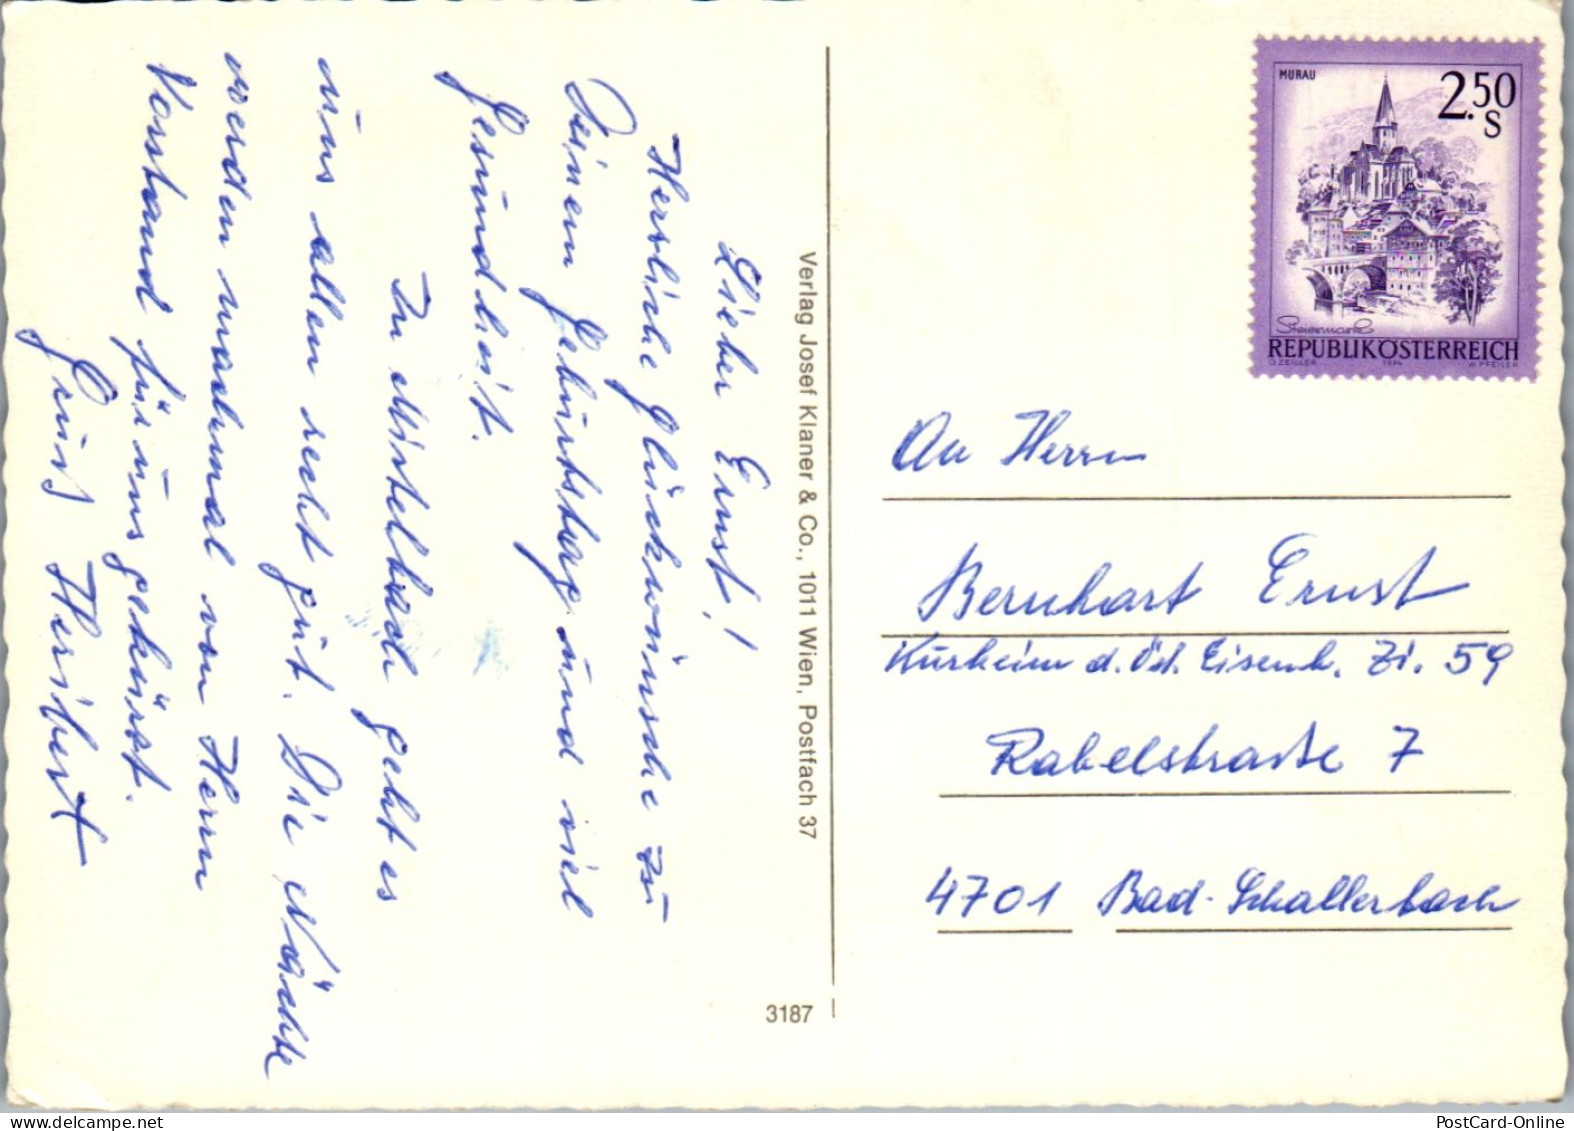 Lieber Ernst!
Herzliche Glückwünsche zu
Deinem Geburtstag und viel
Gesundheit.
In Mistelbach geht es
uns allen recht gut. Die Nächte
werden manchmal von Herrn
Vorstand für uns gekürzt.
Gruß Heribert
Verlag Josef Klaner & Co., 1011 Wien, Postfach 37
3187
MURAU
2.50
S
Steiermark
REPUBLIK ÖSTERREICH
O. ZEILLER 1974 W. PFEILER
An Herrn
Bernhart Ernst
Kurheim d. Öst. Eisenb. Zi. 59
Rabelstraße 7
4701 Bad-Schallerbach
PostCard-Online